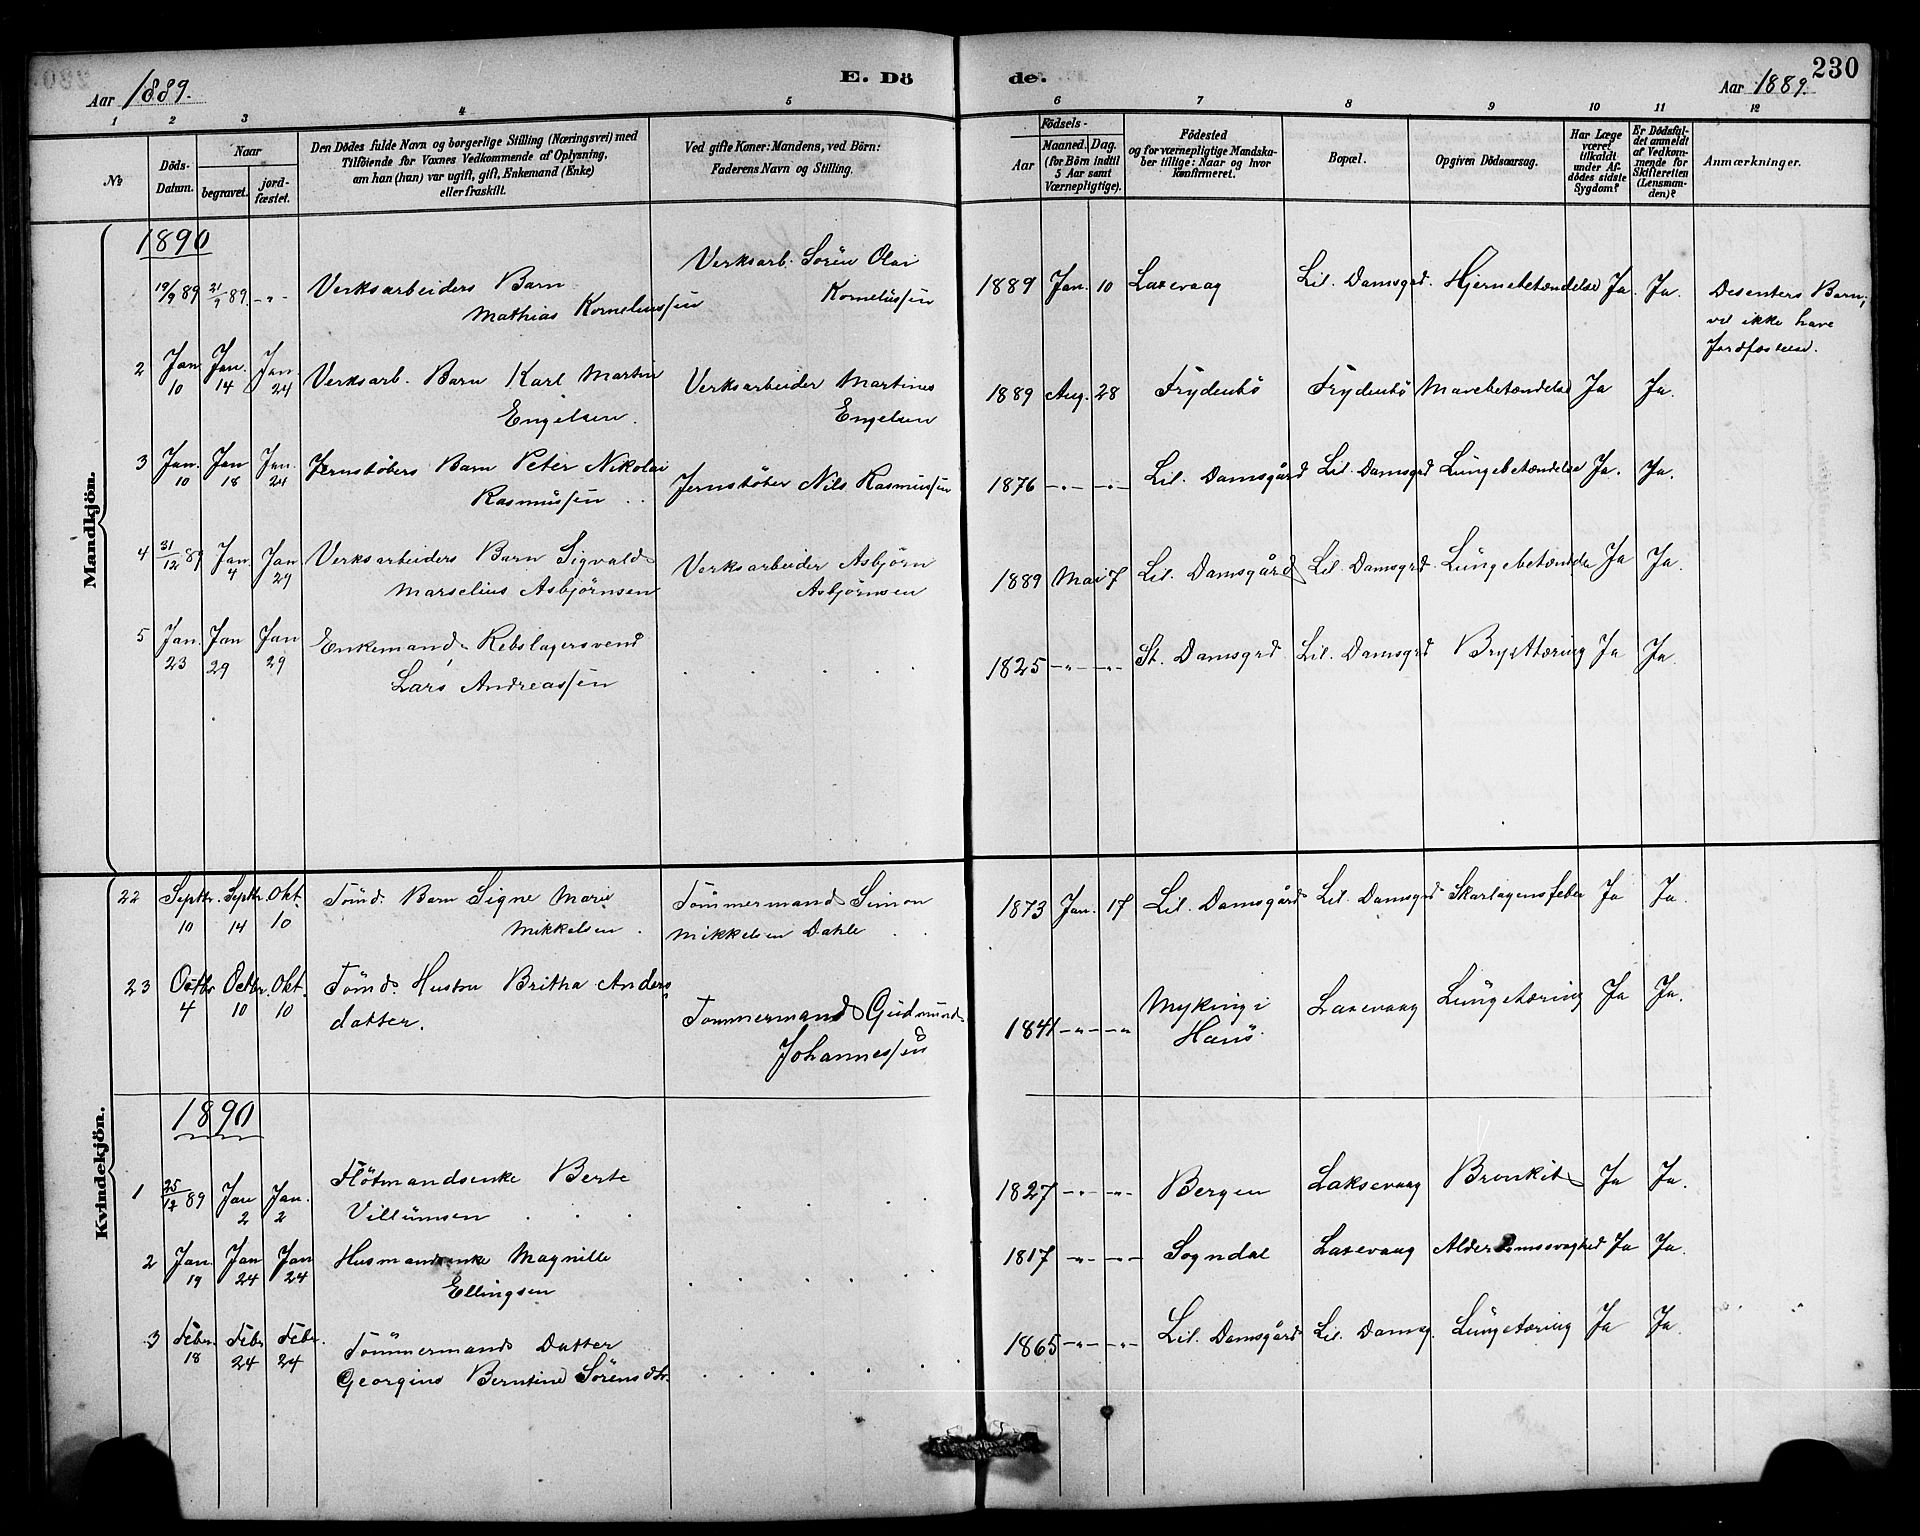 Aar 1889.
E. Dö
de.
Aar 1889.
230
1
2
3
4
5
6
7
8
9
10
11
12
№
Döds-
Datum.
Naar
begravet.
jord-
fæstet.
Den Dödes fulde Navn og borgerlige Stilling (Næringsvei) med
Tilföiende for Voxnes Vedkommende af Oplysning,
om han (hun) var ugift, gift, Enkemand (Enke)
eller fraskilt.
Ved gifte Koner: Mandens, ved Börn:
Faderens Navn og Stilling.
Födsels-
Aar
Maaned. Dag.
(for Börn indtil
5 Aar samt
Værnepligtige).
Födested
og for værnepligtige Mandska-
ber tillige: Naar og hvor
konfirmeret.
Bopæl.
Opgiven Dödsaarsag.
Har Læge
været
tilkaldt
under Af-
dödes sidste
Sygdom?
Er Dödsfal-
det anmeldt
af Vedkom-
mende for
Skifteretten
(Lensman-
den)?
Anmærkninger.
Mandkjön.
1890
19/9 89 21/9 89. -"- Verksarbeiders Barn
Mathias Korneliussen
Verksarb. Sören Olai
Korneliussen
1889 Jan. 10 Laxevaag Lil. Damsgrd. Hjernebetændelse Ja. Ja.
Desenters Barn,
vil ikke have
Jordfæstelse.
2 Jan. 10 Jan. 14 Jan. 24 Verksarb. Barn Karl Martin
Engelsen.
Verksarbeider Martines
Engelsen
1889 Aug. 28 Frydenbö Frydenbö Mavebetændelse Ja Ja.
3 Jan. 10 Jan 18 Jan. 24 Jernstöbers Barn Peter Nikolai
Rasmussen
Jernstöber Nils Rasmussen
1876 -"- -"- Lil. Damsgård Lil. Damsgrd Lungebetændelse Ja. Ja.
4 31/12 89 Jan. 4 Jan 29 Verksarbeiders Barn Sigvald
Marselius Asbjörnsen
Verksarbeider Asbjörn
Asbjörnsen
1889 Mai 7 Lil. Damsgård Lil. Damsgrd. Lungebetændelse Ja Ja.
5 Jan. 23 Jan 29 Jan 29 Enkemand, Rebslagersvend
Lars Andreassen
1825 -"- -"- St. Damsgrd Lil. Damsgrd Brysttæring Ja Ja.
Kvindekjön.
22 Septbr. 10 Septbr. 14 Okt. 10 Tömd. Barn Signe Marie
Mikkelsen
Tömmermand Simon
Mikkelsen Dahle
1873 Jan. 17 Lil. Damsgård Lil. Damsgrd Skarlagensfeber Ja Ja.
23 Octbr 4 Octbr. 10 Okt. 10 Tömd. Hustru Britha Anders
datter.
Tömmermand Gudmund
Johannessen
1841 -"- -"- Myking i
Hans̈ Laxevaag Lungetæring Ja Ja.
1890
1 25/12 89 Jan 2 Jan. 2 Flötmandsenke Berte
Villumsen
1827 -"- -"- Bergen Laksevaag Bronkit Ja Ja.
2 Jan. 19 Jan 24 Jan 24 Husmandsenke Magnille
Ellingsen
1817 -"- -"- Sogndal Laxevaag Alderdomssvaghed Ja Ja.
3 Febr. 18 Febr 24 Febr. 24 Tömmermands Datter
Georgine Berntine Sörensdtr.
1865 -"- -"- Lil. Damsgård Lil. Damsg. Lungetæring Ja Ja.